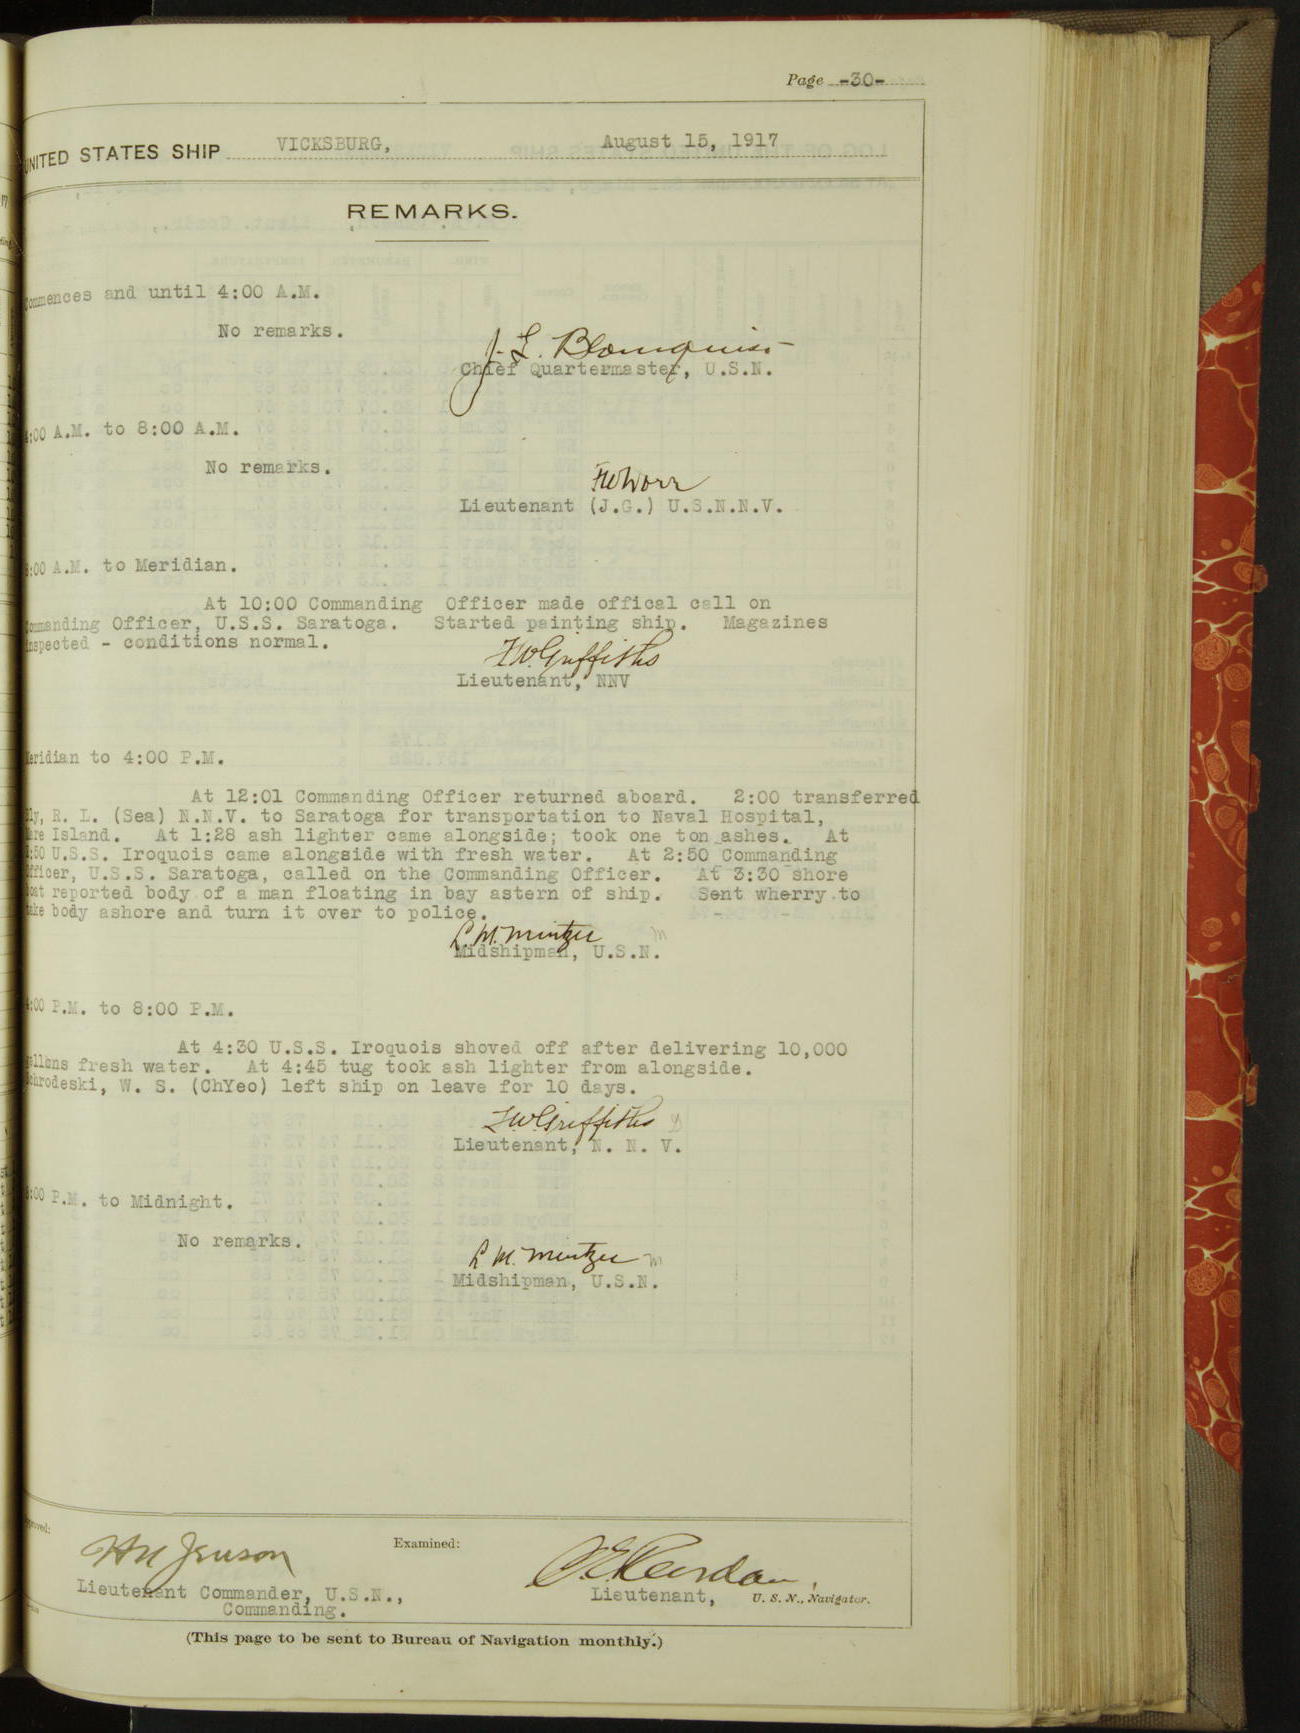 Page -30-
UNITED STATES SHIP VICKSBURG, August 15, 1917
REMARKS.
Commences and until 4:00 A.M.
No remarks.
J. L. Blomquist
Chief Quartermaster, U.S.N.
4:00 A.M. to 8:00 A.M.
No remarks.
Lieutenant (J.G.) U.S.N.N.V.
8:00 A.M. to Meridian.
At 10:00 Commanding Officer made offical call on
Commanding Officer, U.S.S. Saratoga. Started painting ship. Magazines
inspected - conditions normal.
F.W. Griffiths
Lieutenant, NNV
Meridian to 4:00 P.M.
At 12:01 Commanding Officer returned aboard. 2:00 transferred
R. L. (Sea) N.N.V. to Saratoga for transportation to Naval Hospital,
Mare Island. At 1:28 ash lighter came alongside; took one ton ashes. At
:50 U.S.S. Iroquois came alongside with fresh water. At 2:50 Commanding
Officer, U.S.S. Saratoga, called on the Commanding Officer. At 3:30 shore
boat reported body of a man floating in bay astern of ship. Sent wherry to
take body ashore and turn it over to police.
L. M. Mintzer
Midshipman, U.S.N.
4:00 P.M. to 8:00 P.M.
At 4:30 U.S.S. Iroquois shoved off after delivering 10,000
gallons fresh water. At 4:45 tug took ash lighter from alongside.
W. S. (ChYeo) left ship on leave for 10 days.
F.W. Griffiths
Lieutenant, N. N. V.
8:00 P.M. to Midnight.
No remarks.
L. M. Mintzer
Midshipman, U.S.N.
Approved:
Examined:
Jenson
Lieutenant Commander, U.S.N.,
Lieutenant, U. S. N., Navigator.
Commanding.
(This page to be sent to Bureau of Navigation monthly.)